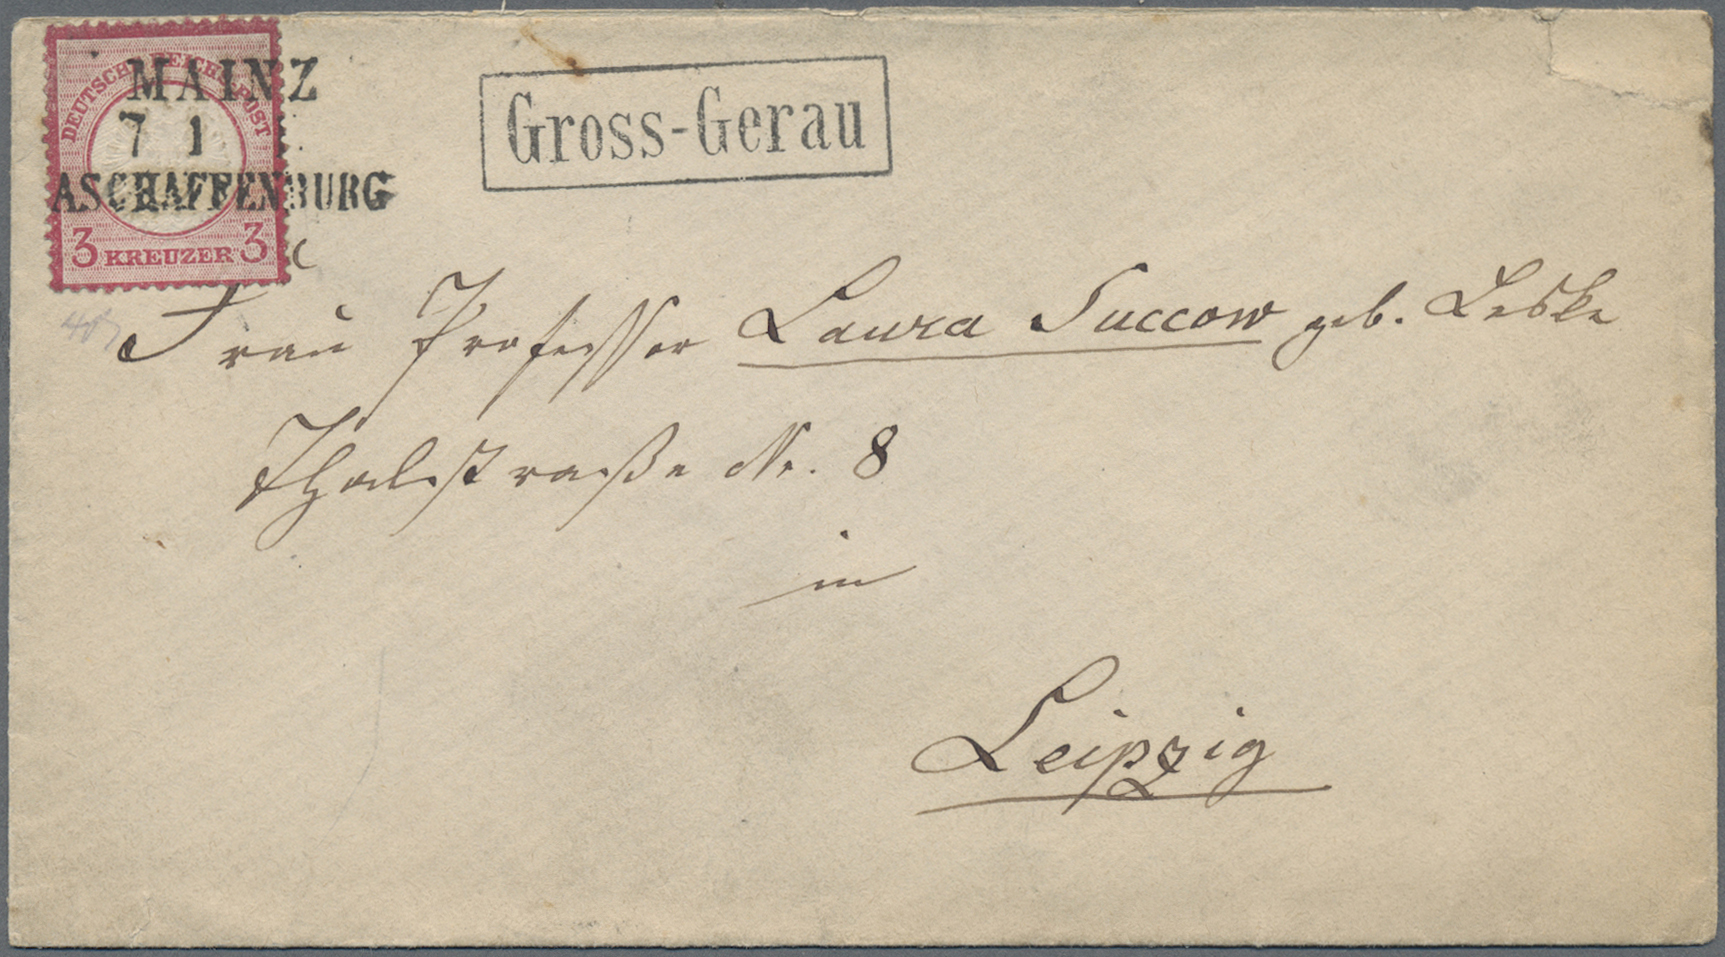 DEUTSCHE REICHS-POST
3 KREUZER 3
MAINZ
7 1
ASCHAFFENBURG
Gross-Gerau
Frau Professor Laura Succow geb. Leske
Thalstraße Nr. 8
in
Leipzig